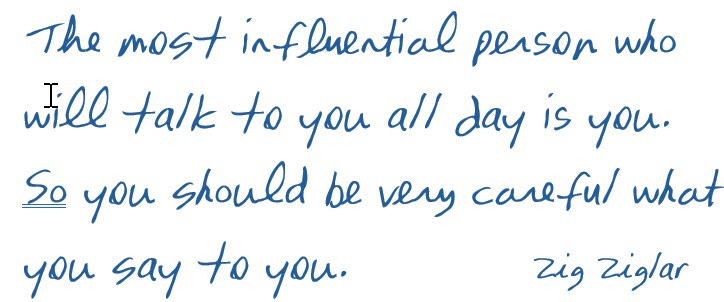 The most influential person who
will talk to you all day is you.
So you should be very careful what
you say to you. Zig Ziglar